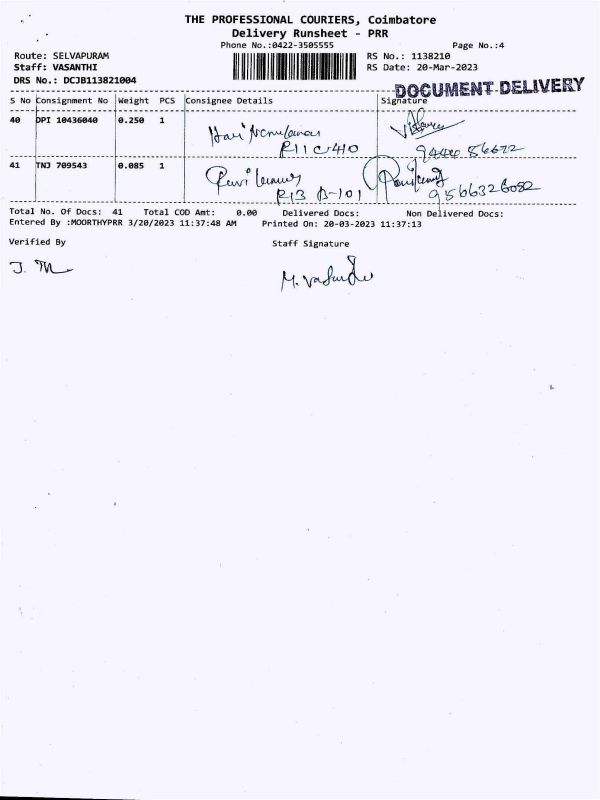 THE PROFESSIONAL COURIERS, Coimbatore
Delivery Runsheet - PRR
Phone No.:0422-3505555 Page No.:4
Route: SELVAPURAM RS No.: 1138210
Staff: VASANTHI RS Date: 20-Mar-2023
DRS No.: DCJB113821004
DOCUMENT DELIVERY
S No Consignment No Weight PCS Consignee Details Signature
40 DPI 10436040 0.250 1
Hari
R11 C-410
41 TNJ 709543 0.085 1
R13 B-101 9566326082
Total No. Of Docs: 41 Total COD Amt: 0.00 Delivered Docs: Non Delivered Docs:
Entered By :MOORTHYPRR 3/20/2023 11:37:48 AM Printed On: 20-03-2023 11:37:13
Verified By Staff Signature